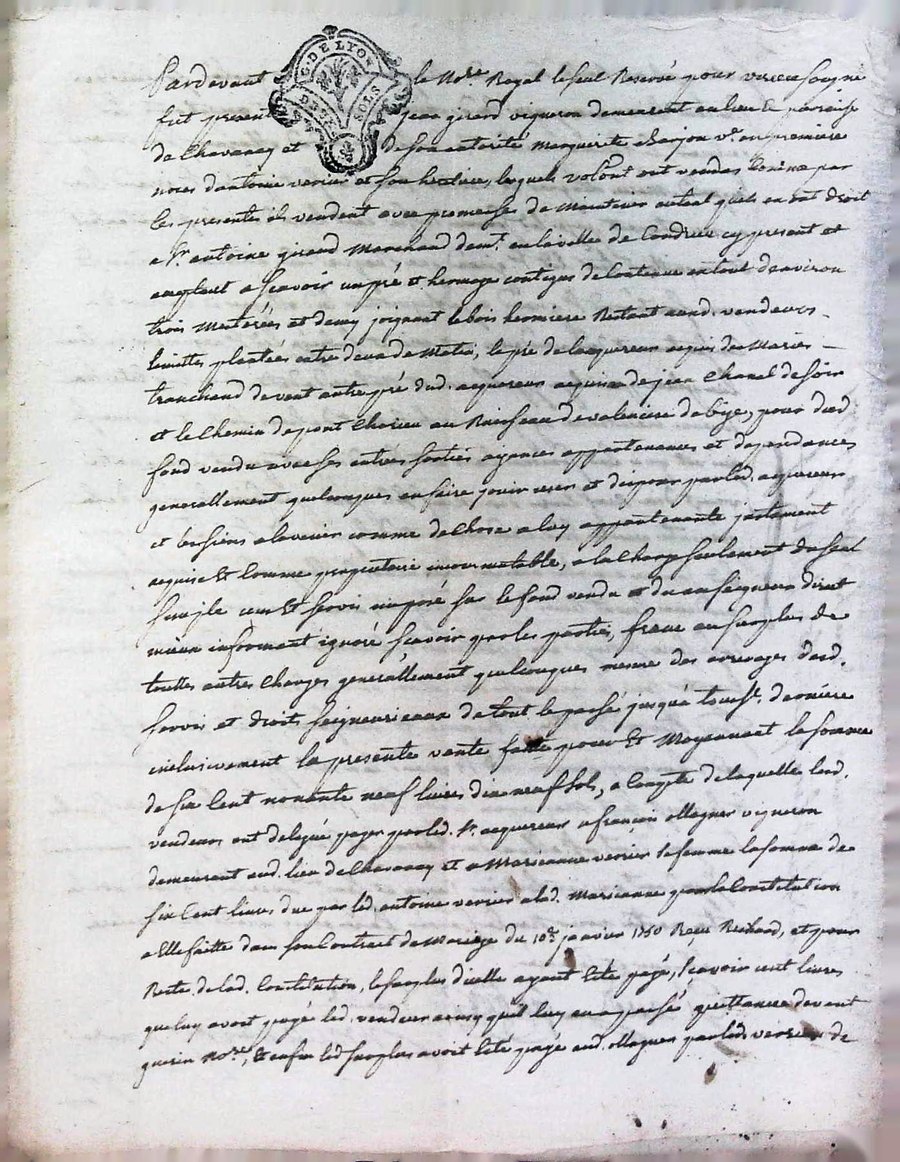 G. DE LYON
DEUX SOLS
Pardevant le No.re Royal Soussigné
fut present jean girard vigneron demeurant au lieu & paroisse
de Chavanay et de son autorité Marguerite v.e en premiere
noces d'antoine verrier et son heritiere, lesquels volont. ont vendus comme par
les presentes ils vendent avec promesse de Maintenir autant quils en ont droit
a S.r antoine girard Marchand dem.t en la ville de Condrieu cy present et
acceptant a scavoir un pré et hermage contigus de Contenue en tout d'environ
trois Meterées et demy joignant le bois hermiere Restant aud. vendeurs
limittes plantées entre deux de Matin, le pré de lacquereur acquis de Marie
tranchand de vent autre pré dud. acquereur acquis de jean Chanal de soir
et le Chemin de pont au Ruisseau de valencise de bize, pour dud
fond vendu avec ses entrées sorties aisances appartenances et dependances
generallement quelconques en faire jouir user et disposer par led. acquereur
et les siens a lavenir comme de Chose a luy appartenante justement
acquise Et Comme proprietaire incommutable, a la Charge seulement du seul
simple cens Et servis imposé sur le fond vendu et du au seigneur direct
mieux informant ignoré scavoir par les parties, franc au surplus de
touttes autres Charges generallement quelconques meme des arrerages dud.
servis et droits seigneuriaux de tout le passé jusqu'a touss.t derniere
inclusivement la presente vente faite pour Et Moyennant la somme
de six Cent nonante neuf livres dix neuf sols, a Compte de laquelle led.
vendeurs ont delegué payer par led. S.r acquereur a françois ollagner vigneron
demeurant aud. lieu de Chavanay et a Marianne verrier sa femme la somme de
six Cent livres due par led. antoine verrier a lad. Marianne pour la Constitution
a Elle faitte dans son Contract de Mariage du 10.e janvier 1750 Reçu Richard, et pour
Reste de lad. Constitution, le surplus d'icelle ayant Eté payé, scavoir cent livres
que luy avoit payé led. vendeur ainsy qu'il luy en a passé quittance devant
guerin No.re, & enfin led. surplus avoit Eté payé aud. ollagner par led. verrier de